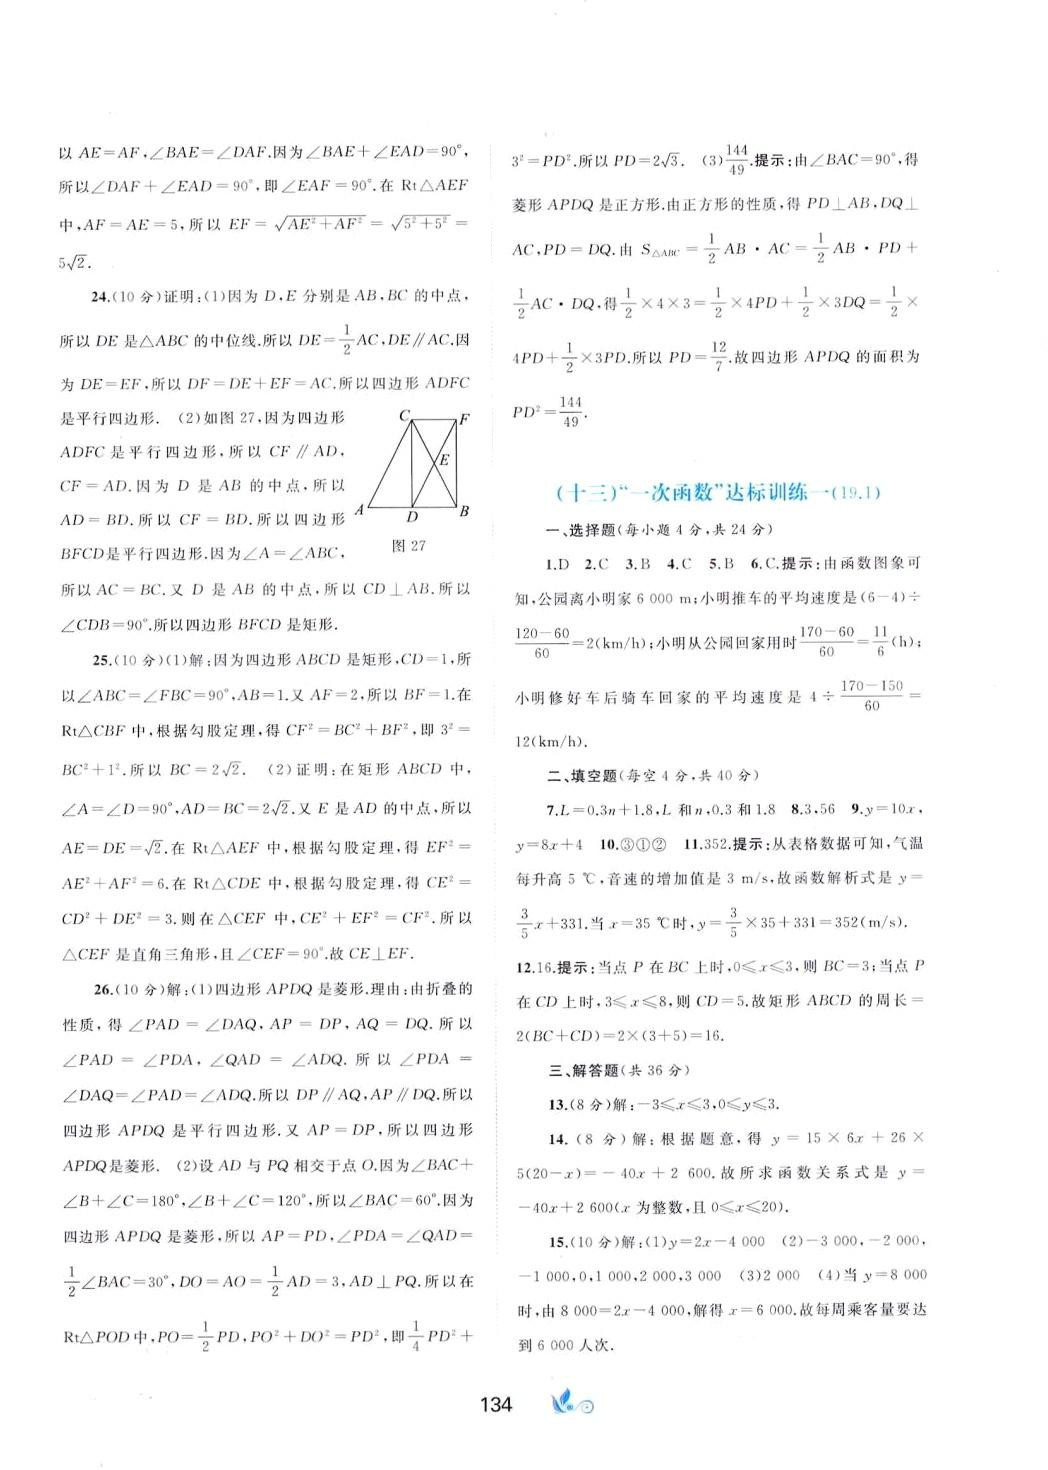 以 AE=AF,∠BAE=∠DAF.因为∠BAE+∠EAD=90°,
所以∠DAF+∠EAD=90°,即∠EAF=90°.在 Rt△AEF
中,AF=AE=5,所以 EF=√(AE²+AF²)=√(5²+5²)=
5√2.
24.(10分)证明:(1)因为 D,E 分别是 AB,BC 的中点,
所以 DE 是△ABC 的中位线.所以 DE=1/2AC,DE∥AC.因
为 DE=EF,所以 DF=DE+EF=AC.所以四边形 ADFC
是平行四边形. (2)如图 27,因为四边形
ADFC 是平行四边形,所以 CF∥AD,
CF=AD.因为 D 是 AB 的中点,所以
AD=BD.所以 CF=BD.所以四边形
BFCD是平行四边形.因为∠A=∠ABC,
C
F
E
A
D
B
图 27
所以 AC=BC.又 D 是 AB 的中点,所以 CD⊥AB.所以
∠CDB=90°.所以四边形 BFCD 是矩形.
25.(10分)(1)解:因为四边形 ABCD 是矩形,CD=1,所
以∠ABC=∠FBC=90°,AB=1.又 AF=2,所以 BF=1.在
Rt△CBF 中,根据勾股定理,得 CF²=BC²+BF²,即 3²=
BC²+1².所以 BC=2√2. (2)证明:在矩形 ABCD 中,
∠A=∠D=90°,AD=BC=2√2.又 E 是 AD 的中点,所以
AE=DE=√2.在 Rt△AEF 中,根据勾股定理,得 EF²=
AE²+AF²=6.在 Rt△CDE 中,根据勾股定理,得 CE²=
CD²+DE²=3.则在△CEF 中,CE²+EF²=CF².所以
△CEF 是直角三角形,且∠CEF=90°.故 CE⊥EF.
26.(10分)解:(1)四边形 APDQ 是菱形.理由:由折叠的
性质,得 ∠PAD=∠DAQ,AP=DP,AQ=DQ.所以
∠PAD=∠PDA,∠QAD=∠ADQ.所以∠PDA=
∠DAQ=∠PAD=∠ADQ.所以 DP∥AQ,AP∥DQ.所以
四边形 APDQ 是平行四边形.又 AP=DP,所以四边形
APDQ是菱形. (2)设 AD 与 PQ 相交于点 O.因为∠BAC+
∠B+∠C=180°,∠B+∠C=120°,所以∠BAC=60°.因为
四边形 APDQ 是菱形,所以 AP=PD,∠PDA=∠QAD=
1/2∠BAC=30°,DO=AO=1/2AD=3,AD⊥PQ.所以在
Rt△POD 中,PO=1/2PD,PO²+DO²=PD²,即1/4PD²+
3²=PD².所以 PD=2√3. (3)144/49.提示:由∠BAC=90°,得
菱形 APDQ 是正方形.由正方形的性质,得 PD⊥AB,DQ⊥
AC,PD=DQ.由 S△ABC=1/2AB·AC=1/2AB·PD+
1/2AC·DQ,得1/2×4×3=1/2×4PD+1/2×3DQ=1/2×
4PD+1/2×3PD.所以 PD=12/7.故四边形 APDQ 的面积为
PD²=144/49.
(十三)“一次函数”达标训练一(19.1)
一、选择题(每小题 4 分,共 24 分)
1.D 2.C 3.B 4.C 5.B 6.C.提示:由函数图象可
知,公园离小明家 6 000 m;小明推车的平均速度是(6-4)÷
(120-60)/60=2(km/h);小明从公园回家用时(170-60)/60=11/6(h);
小明修好车后骑车回家的平均速度是 4÷(170-150)/60=
12(km/h).
二、填空题(每空 4 分,共 40 分)
7.L=0.3n+1.8,L 和n,0.3 和 1.8 8.3,56 9.y=10x,
y=8x+4 10.③①② 11.352.提示:从表格数据可知,气温
每升高 5 ℃,音速的增加值是 3 m/s,故函数解析式是 y=
3/5x+331.当 x=35 ℃时,y=3/5×35+331=352(m/s).
12.16.提示:当点 P 在 BC 上时,0≤x≤3,则 BC=3;当点 P
在 CD 上时,3≤x≤8,则 CD=5.故矩形 ABCD 的周长=
2(BC+CD)=2×(3+5)=16.
三、解答题(共 36 分)
13.(8分)解:-3≤x≤3,0≤y≤3.
14.(8分)解:根据题意,得 y=15×6x+26×
5(20-x)=-40x+2 600.故所求函数关系式是 y=
-40x+2 600(x 为整数,且 0≤x≤20).
15.(10分)解:(1)y=2x-4 000 (2)-3 000,-2 000,
-1 000,0,1 000,2 000,3 000 (3)2 000 (4)当 y=8 000
时,由 8 000=2x-4 000,解得 x=6 000.故每周乘客量要达
到 6 000 人次.
134